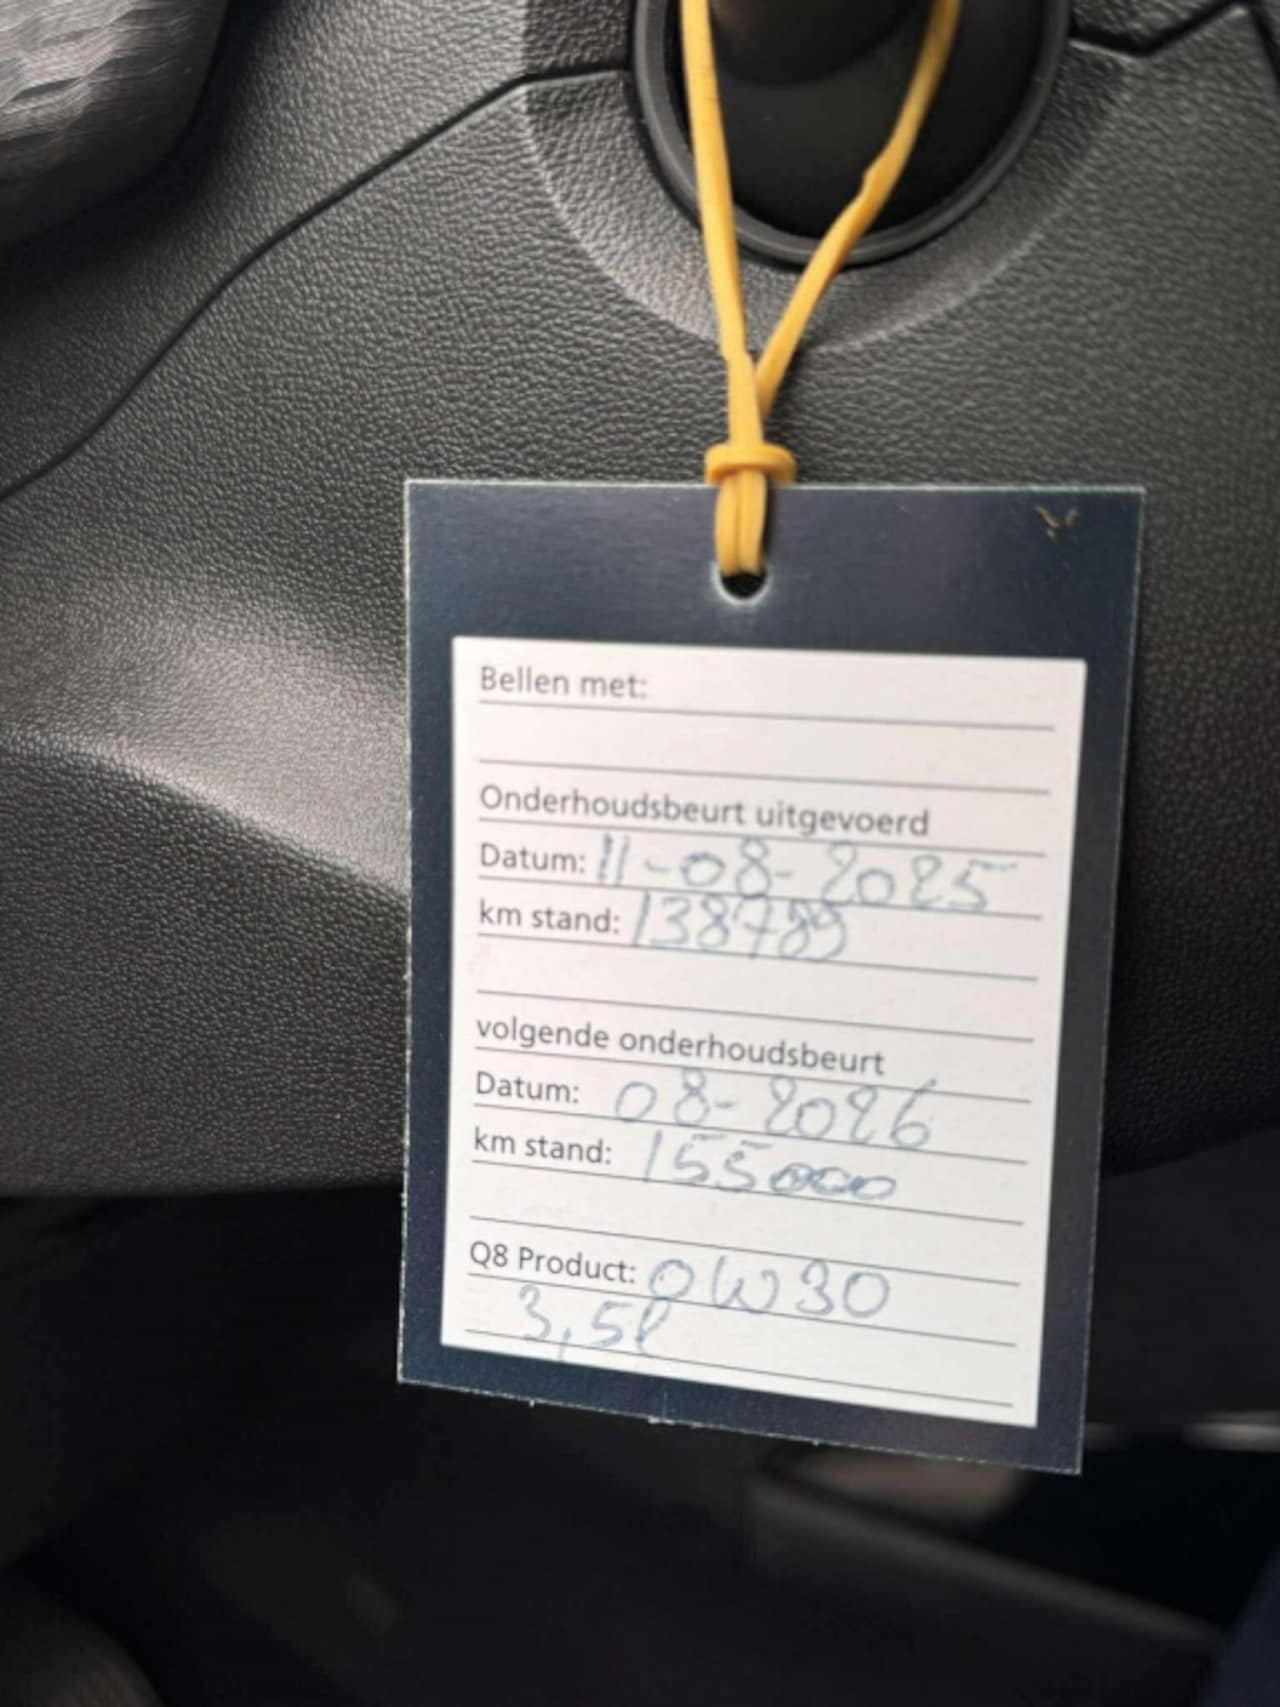 Bellen met:
Onderhoudsbeurt uitgevoerd
Datum: 11-08-2025
km stand: 138789
volgende onderhoudsbeurt
Datum: 08-2026
km stand: 155000
Q8 Product: 0W30
3,5l